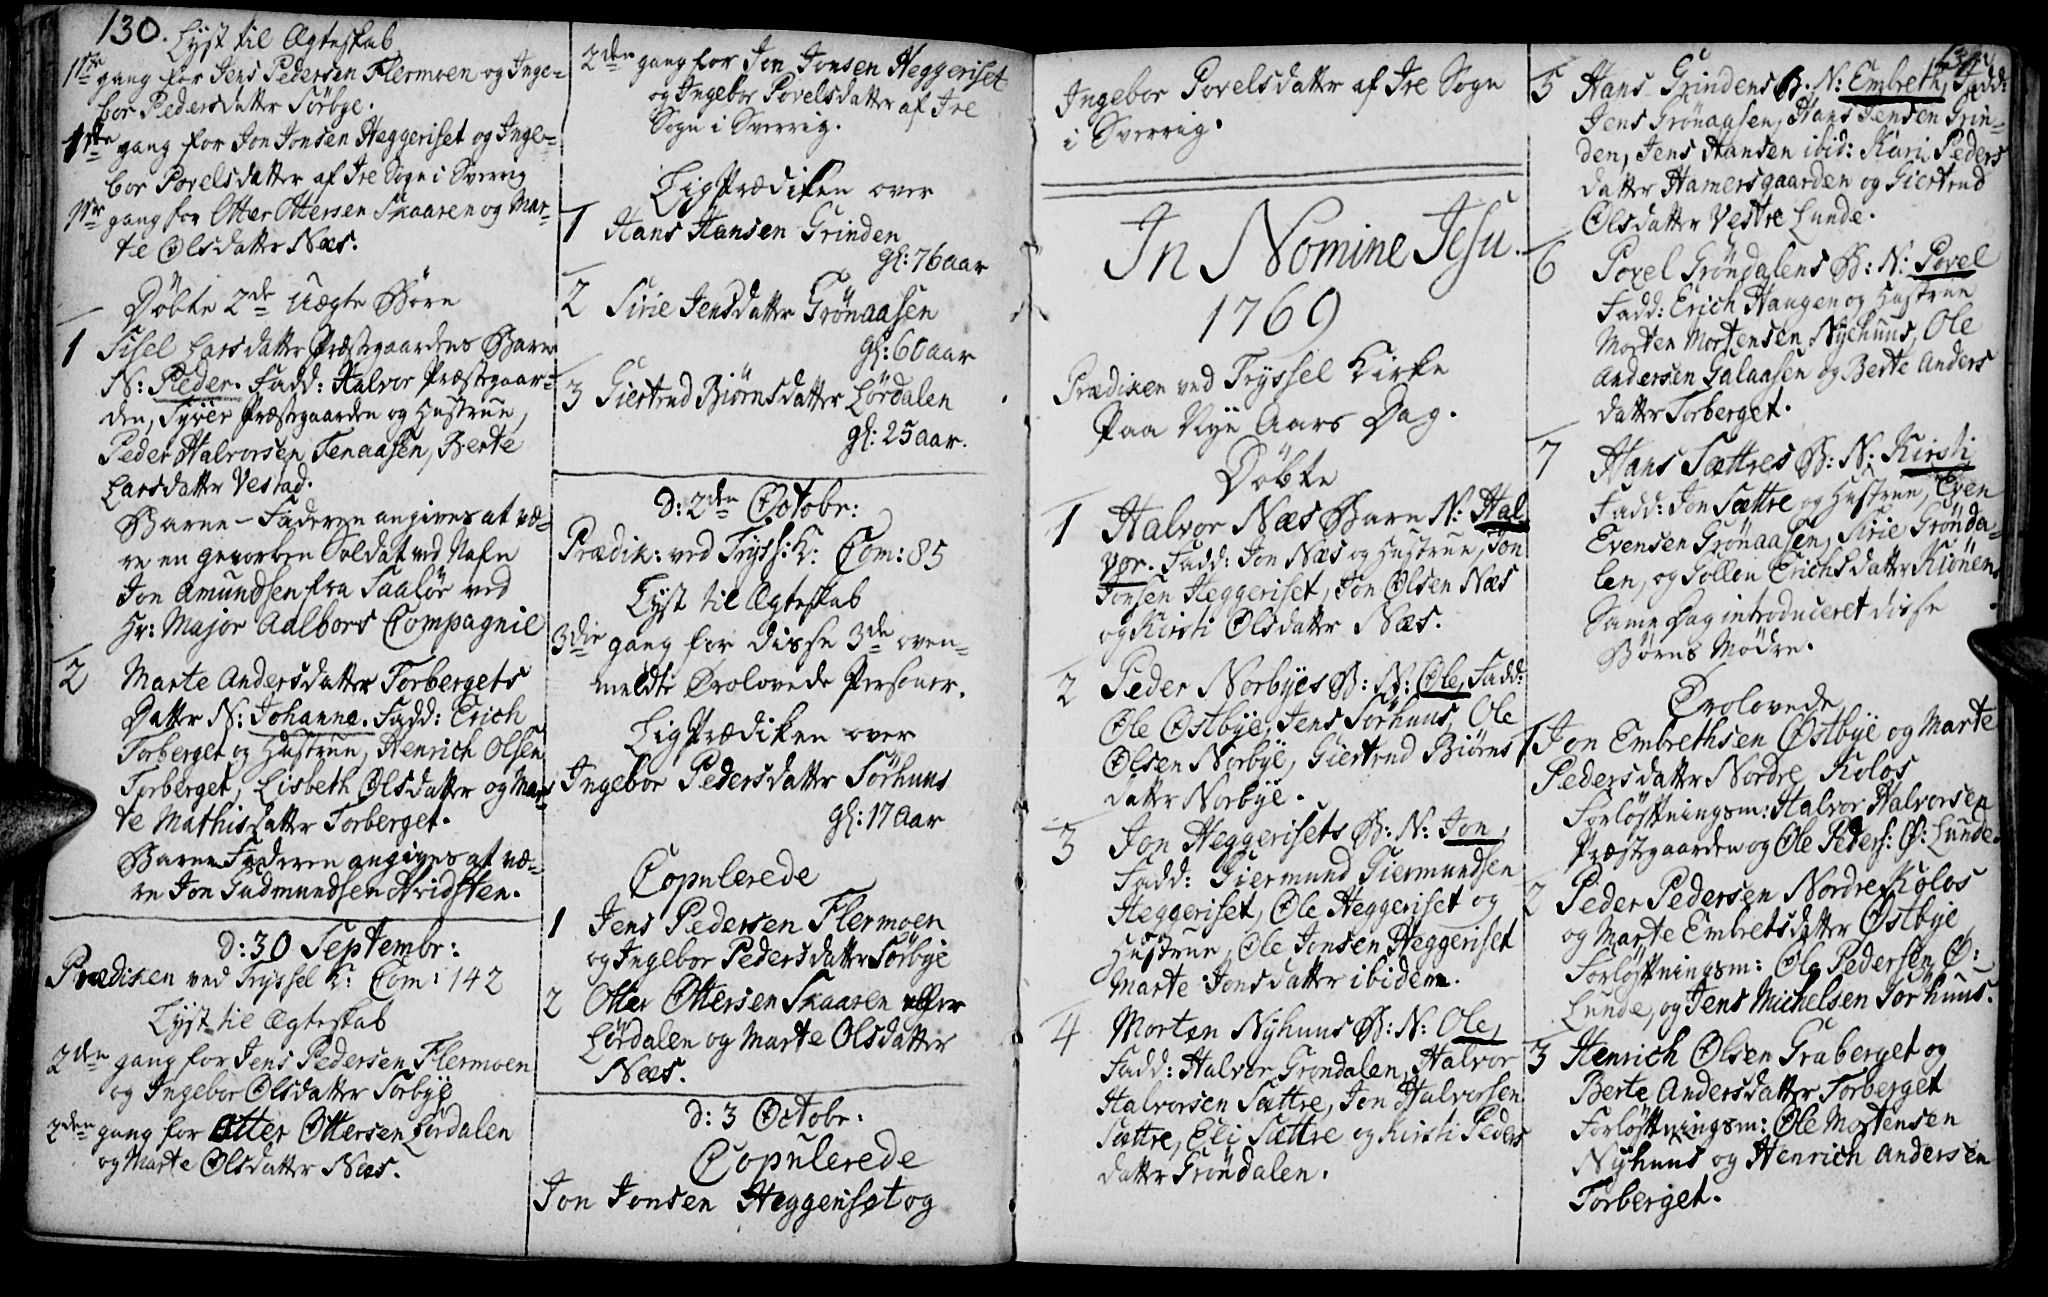 130.
Lyst til Ægteskab
1ste gang for Jens Pedersen Flermoen og Inge-
bor Pedersdatter Sörbye.
1ste gang for Jon Jonsen Heggeriset og Inge-
bor Povelsdatter af Ire Sogn i Sverrig
1ste gang for Otter Ottersen Skaaren og Mar-
te Olsdatter Næs.
Döbte 2de Uægte Börn
1 Sisel Larsdatter Præstegaardens Barn
N: Peder. Fadd: Halvor Præstegaar-
den, Syver Præstegaarden og Hustrue,
Peder Halvorsen Tenaasen, Berte
Larsdatter Vestad.
Barne-Faderen angives at væ-
re en geworben Soldat ved Nafn
Jon Amundsen fra Saalör ved
Hr: Major Aalbors Compagnie
2 Marte Andersdatter Torbergets
Datter N: Johanna. Fadd: Erich
Torberget og Hustrue, Henrich Olsen
Torberget, Lisbeth Olsdatter og Mar-
te Mathisdatter Torberget.
Barne Faderen angives at væ-
re Jon Gudmundsen Qvidsten.
d: 30 Septembr:
Prædiken ved Tryssel K: Com: 142
Lyst til Ægteskab
2den gang for Jens Pedersen Flermoen
og Ingebor Olsdatter Sörbye
2den gang for Otter Ottersen Lördalen
og Marte Olsdatter Næs.
2den gang for Jon Jonsen Heggeriset
og Ingebor Povelsdatter af Ire
Sogn i Sverrig.
Ligprædiken over
1 Hans Hansen Grinden
gl: 76 aar
2 Sirie Jensdatter Grönaasen
gl: 60 aar
3 Giertrud Biörnsdatter Lördalen
gl: 25 aar.
d: 2den Octobr:
Prædik: ved Tryss: K: Com: 85
Lyst til Ægteskab
3die gang for disse 3de oven-
meldte Trolovede Personer.
Ligprædiken over
Ingebor Pedersdatter Sörhuus
gl: 17 Aar
Copulerede
1 Jens Pedersen Flermoen
og Ingebor Pedersdatter Sörbye
2 Otter Ottersen Skaaren eller
Lördalen og Marte Olsdatter
Næs.
d: 3 Octobr:
Copulerede
Jon Jonsen Heggeriset og
Ingebor Povelsdatter af Ire Sogn
i Sverrig.
In Nomine Jesu.
1769
Prædiken ved Tryssel Kirke
Paa Nye Aars Dag.
Döbte
1 Halvor Næs Barn N: Hal-
vor. Fadd: Jon Næs og Hustrue, Jon
Jonsen Heggeriset, Jon Olsen Næs
og Kirsti Olsdatter Næs.
2 Peder Norbyes B: N: Ole, Fadd:
Ole Östbye, Jens Sörhuus, Ole
Olsen Norbye, Giertrud Biörns-
datter Norbye.
3 Jon Heggerisets B: N: Jon,
Fadd: Giermund Giermundsen
Heggeriset, Ole Heggeriset og
Hustrue, Ole Jonsen Heggeriset
Marte Jonsdatter ibidem.
4 Morten Nyhuus B: N: Ole,
Fadd: Halvor Gröndalen, Halvor
Halvorsen Sættre, Jon Halvorsen
Sættre, Eli Sættre og Kirsti Peders
datter Gröndalen.
5 Hans Grindens B: N: Embreth, Fadd:
Jens Grönaasen, Hans Jensen Grin-
den, Jens Hansen ibid: Kari Peders
datter Hamersgaarden og Giertrud
Olsdatter Vestre Lunde.
6 Povel Gröndalens B: N: Povel
Fadd: Erich Haugen og Hustrue
Morten Mortensen Nyehuus, Ole
Andersen Galaasen og Berte Anders
datter Torberget.
7 Hans Sættres B: N: Kirsti
Fadd: Jon Sættre og Hustrue, Even
Evensen Grönaasen, Sirie Grönda-
len, og Gollou Erichsdatter Kiönen.
Same Dag introduceret disse
Börns Mödre.
Trolovede
1 Jon Embrethsen Östbye og Marte
Pedersdatter Nordre Kolos
Forlöftningsm: Halvor Halvorsen
Præstegaarden og Ole Peders: Ö: Lunde.
2 Peder Pedersen Nordre Kolos
og Marte Embretsdatter Östbye
Forlöftningsm: Ole Pedersen Ö:
Lunde, og Jens Michelsen Sörhuus.
3 Henrich Olsen Graberget og
Berte Andersdatter Torberget
Forlöftningsm: Ole Mortensen
Nyhuus og Henrich Andersen
Torberget.